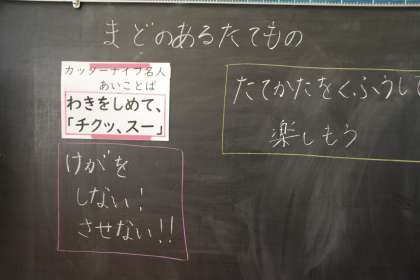 まどのあるたてもの
カッターナイフ名人
あいことば
わきをしめて、
「チクッ、スー」
たてかたをくふうして
楽しもう
けがを
しない!
させない!!